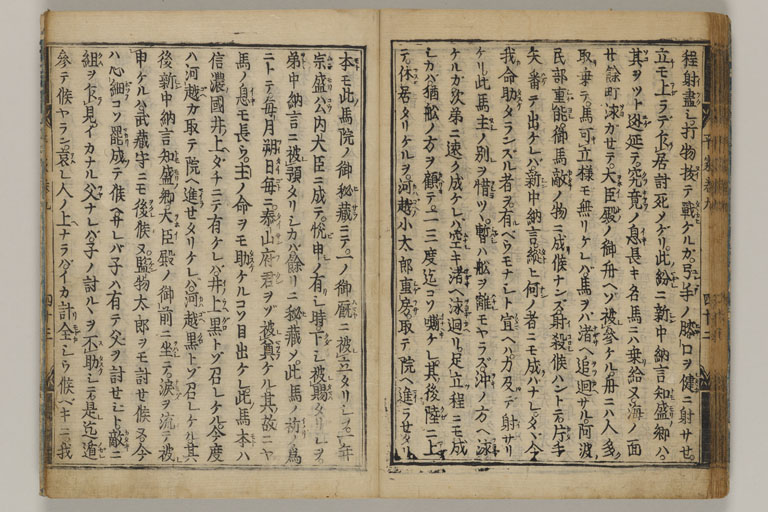 程射盡シ打物抜テ戰ケルガ弓手ノ膝口ヲ健ニ射サセ。
立モ上ラデ乍居討死シテゲリ此紛ニ新中納言知盛卿ハ。
其ヲツト迯延テ。究竟ノ息長キ名馬ニハ乗給ヌ海ノ面
廿餘町泳カセテ。大臣殿ノ御舟ヘゾ被参ケル舟ニハ人多
取乗テ。馬可立様モ無リケレバ馬ヲバ渚ヘ追廻サル。阿波
民部重能御馬敵ノ物ニ成候ナンズ。射殺候ハントテ。片手
矢番テ出ケレバ。新中納言縦ヒ何ノ者ニモ成ハナレ。タヾ今
我命助タランズル者ヲ。有ベウモナシト宣ヘハ力及テ射サリ
ケリ此馬主ノ別ヲ惜ツヽ暫ハ舩ヲ離モヤラズ。沖ノ方ヘ泳
ケルガ次第ニ遠ク成ケレハ空キ渚ヘ泳廻リ。足立程ニモ成
シカバ猶舩ノ方ヲ顧テ。二三度迄コソ嘶ケレ其後陸ニ上
テ。休居タリケルヲ。河越小太郎重房取テ院ヘ進ラセタリ
本モ此馬院ノ御秘藏ニテ。一ノ御厩ニ被立タリシヲ。一年
宗盛公内大臣ニ成テ。悦申ノ有シ時下シ被賜タリシヲ
弟中納言ニ被預タリシカバ餘リニ秘藏シテ。此馬ノ祈ノ為
ニトテ毎月朔日毎ニ泰山府君ヲゾ被貪ケル其故ニヤ
馬ノ息モ長ウ。主ノ命ヲモ助ケルコソ目出ケレ此馬本ハ
信濃國井上ダチニテ有ケレバ井上黒トゾ召レケル今度
ハ河越ガ取テ院ヘ進セタリケレバ河越黒トゾ召レケル其
後新中納言知盛卿大臣殿ノ御前ニ坐テ。涙ヲ流テ被
申ケルハ武藏守ニモ後候ヌ監物太郎ヲモ討セ候ヌ今
ハ心細コソ罷成テ候ヘ サレバ子ハ有テ父ヲ討セシト敵ニ
組ヲ乍見イカナル父ナレバ子ノ討ルヽヲ不助シテ是迄遁
参テ候ヤラン哀レ人ノ上ナラバイカ計全シウ候ベキニ我
平家巻九
四十二
四十三